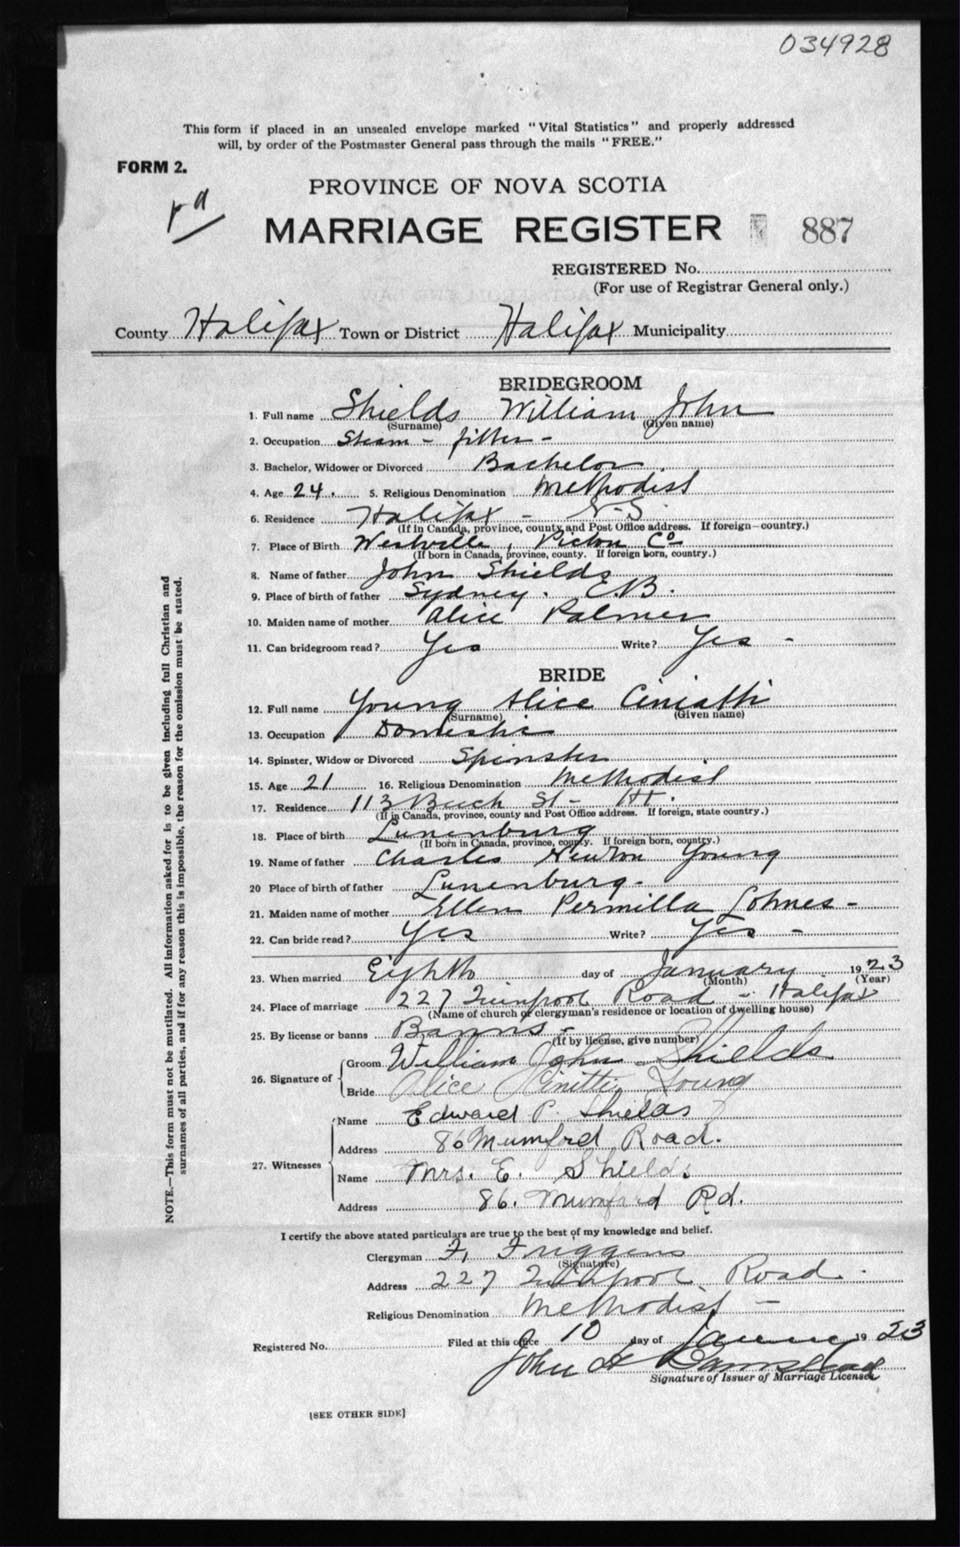 034928
This form if placed in an unsealed envelope marked "Vital Statistics" and properly addressed
will, by order of the Postmaster General pass through the mails "FREE."
FORM 2.
PROVINCE OF NOVA SCOTIA
MARRIAGE REGISTER 887
REGISTERED No.
(For use of Registrar General only.)
County Halifax Town or District Halifax Municipality
BRIDEGROOM
1. Full name Shields William John
(Surname) (Given name)
2. Occupation Steam - fitter -
3. Bachelor, Widower or Divorced Bachelor.
4. Age 24. 5. Religious Denomination Methodist
6. Residence Halifax - N-S.
(If in Canada, province, county and Post Office address. If foreign—country.)
7. Place of Birth Westville, Pictou Co
(If born in Canada, province, county. If foreign born, country.)
8. Name of father John Shields
9. Place of birth of father Sydney. C.B.
10. Maiden name of mother Alice Palmer
11. Can bridegroom read? Yes Write? Yes -
BRIDE
12. Full name Young Alice
(Surname) (Given name)
13. Occupation Domestic
14. Spinster, Widow or Divorced Spinster
15. Age 21 16. Religious Denomination Methodist
17. Residence 113 Beech St -
(If in Canada, province, county and Post Office address. If foreign, state country.)
18. Place of birth Lunenburg
(If born in Canada, province, county. If foreign born, country.)
19. Name of father Charles Newton Young
20 Place of birth of father Lunenburg.
21. Maiden name of mother Ellen Permilla Lohnes -
22. Can bride read? Yes Write? Yes -
23. When married Eighth day of January 1923
(Month) (Year)
24. Place of marriage 227 Quinpool Road - Halifax
(Name of church or clergyman's residence or location of dwelling house)
25. By license or banns Banns -
(If by license, give number)
26. Signature of
Groom William John Shields
Bride Alice Young
27. Witnesses
Name Edward P. Shields
Address 86 Mumford Road.
Name Mrs. E. Shields
Address 86. Mumford Rd.
I certify the above stated particulars are true to the best of my knowledge and belief.
Clergyman F. Friggens
(Signature)
Address 227 Quinpool Road.
Religious Denomination Methodist -
Registered No. Filed at this office 10 day of January 1923
John
Signature of Issuer of Marriage Licenses
[SEE OTHER SIDE]
NOTE.—This form must not be mutilated. All information asked for is to be given including full Christian and
surnames of all parties, and if for any reason this is impossible, the reason for the omission must be stated.